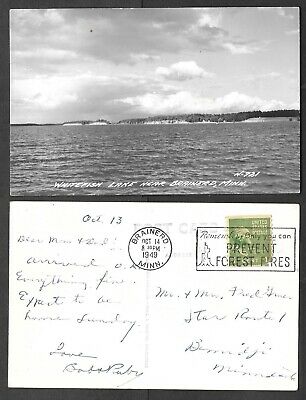 H-781
WHITEFISH LAKE NEAR BRAINERD, MINN.
Oct 13
Dear Mom & Dad:
arrived o.k.
Everything fine.
Expect to be
home Sunday.
Love
Bob & Ruby
POST CARD
BRAINERD
OCT 14
8 PM
1949
MINN.
Remember Only you can
PREVENT
FOREST FIRES
UNITED
Mr. & Mrs. Fred
Star Route 1
Bemidji
Minnesota